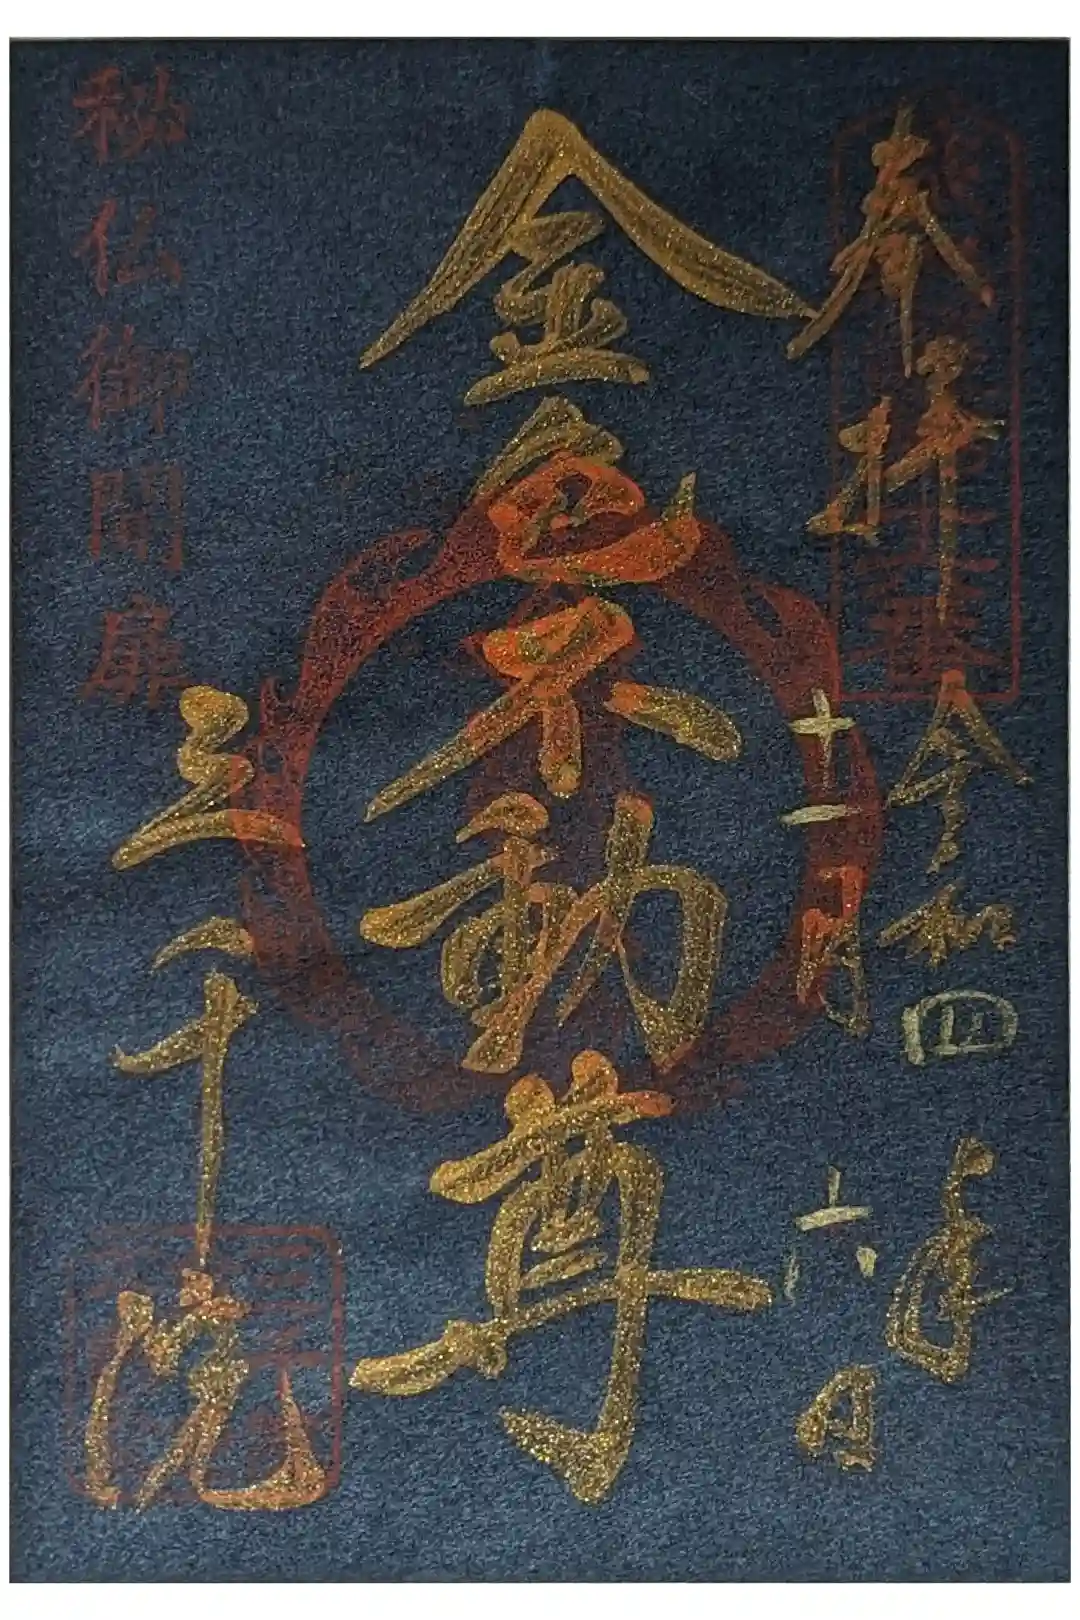 奉拝
令和四年
十一月六日
金色不動尊
三千院
秘仏御開扉